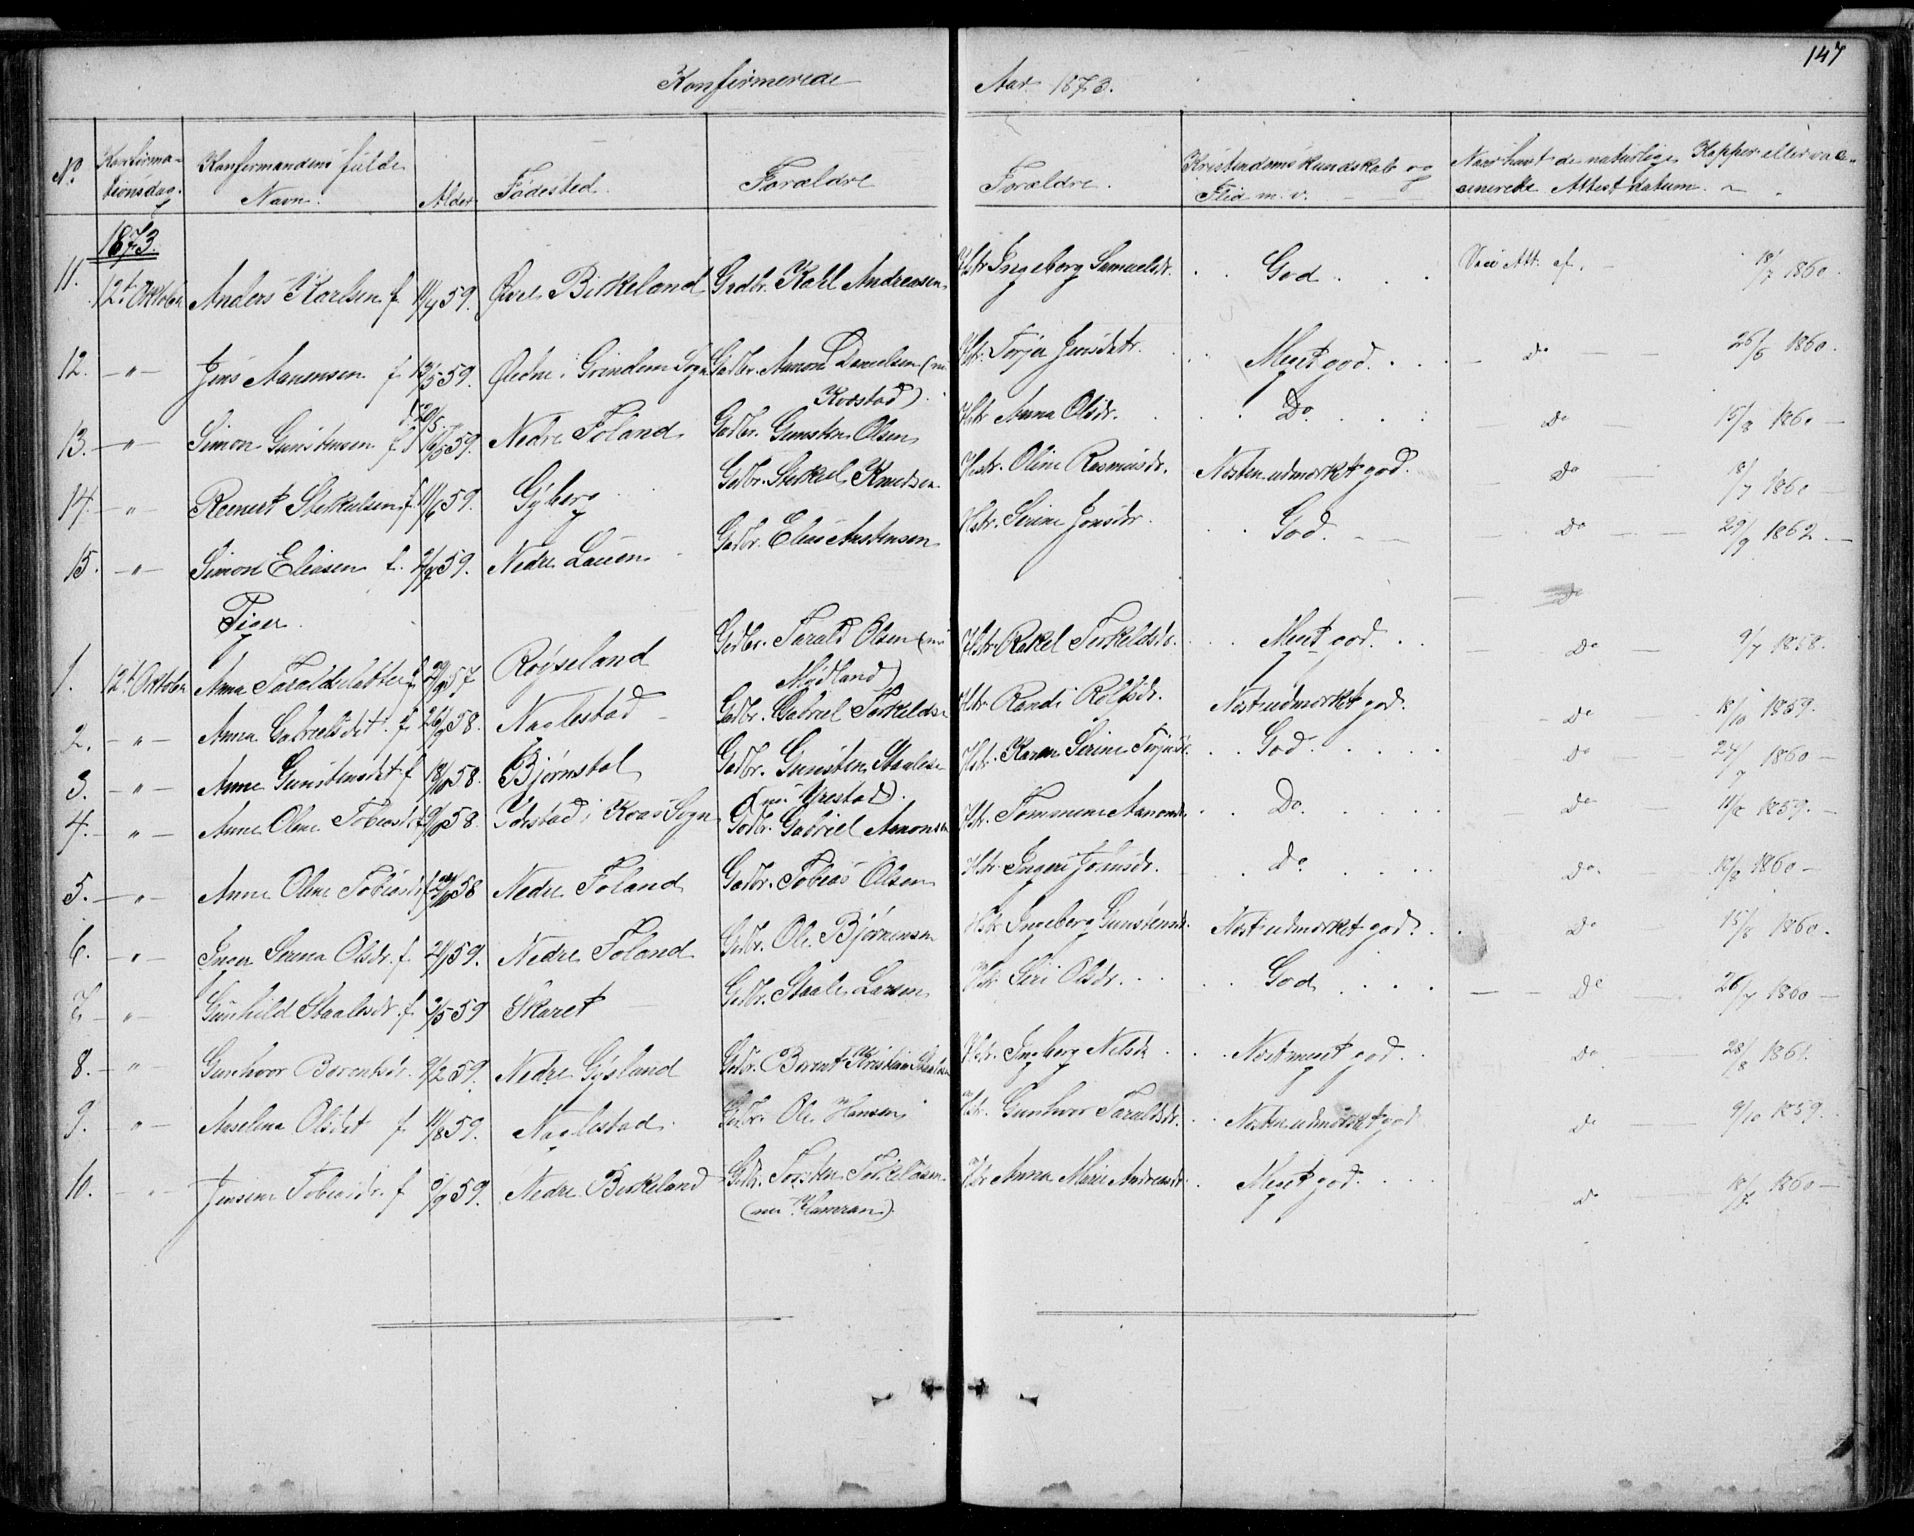 147
Konfirmerede Aar 1873.
No. Konfirma-tionsdag. Konfirmandens fulde Navn. Alder Fødested. Forældre Forældre. Kristendomskundskab og Flid m. v. Naar havt de naturlige Kopper eller vac-cinerede Attest datum.
1873.
11. 12te Oktober Anders Karlsen f. 11/4 59. Øvre Birkeland Gadbr. Karl Andreasen Hstr Ingeborg Samuelsdr. God. Vac. Att. af. 18/7 1860.
12. -"- Jens Aanensen f 13/5 59. Grindem Sogn Gadbr. Aanon Danielsen (nu Kvastad). Hstr. Torjer Jensdatr. Meget god. Do 26/6 1860.
13. -"- Simon Gunstensen f. 16/5 59. Nedre Foland Gadbr. Gunsten Olsen Hstr Anna Olsdr. Do. Do 15/8 1860
14. -"- Reinert Sterkelsen f 11/6 59. Gyberg Gadbr. Sterkel Knudsen Hstr. Oline Rasmusdr. Næsten udmærket god. Do 18/7 1860
15. -"- Simon Eliasen f. 59. Nedre Lauen Gadbr. Elias Austensen Hstr. Serine Jonsdr. God. Do 29/9 1862.
Piger. Do
1. 12te Oktober Anna Taraldsdatter f. 57 Røyseland Gadbr. Tarald Olsen (nu Mydland) Hstr Rakel Terkeldsdr. Meget god. Do 9/7 1858.
2. -"- Anna Gabrielsdet. f 26/9 58. Naglestad Gadbr. Gabriel Terkeldsen Hstr Randi Rolfsdr. Næst udmærket god. Do 18/10 1859.
3. -"- Anne Gunstensdet f 18/10 58. Bjørnstol Gadbr. Gunsten Staalesen (nu Yrestad). Hstr. Karen Serine Torjusdr. God. Do 24/7 1860
4. -"- Anne Oline Tobiasdr f 58. Ydestad i Kvaas Sogn Gadbr. Gabriel Aanonsen Hstr. Tommine Aanonsdr. Do. Do 1859.
5. -"- Anne Oline Tobiasdr f 58 Nedre Foland Gadbr. Tobias Olsen Hstr. Ingeri Jonsdr. Do. Do. 1860
6. -"- Inger Serina Olsdr. f 59. Nedre Foland Gadbr. Ole Bjørnensen Hstr Ingeborg Gunstensdr. Næst udmærket god. Do 15/8 1860.
7. -"- Gunhild Staalesdr. f. 2/5 59 Skaret Gadbr. Staale Larsen Hstr Siri Olsdr. God Do 26/7 1860
8. -"- Gunhvor Berentsdr. 9/2 59. Nedre Gysland Gadbr. Berent Kristian Hstr. Ingborg Nelsdr. Næst meget god. Do 28/8 1861.
9. -"- Aaselena Olsdet f. 11/8 59. Naglestad. Gadbr. Ole Hansen Hstr. Gunhvor Taraldsdr. Næsten udmærket god Do 9/10 1859.
10. -"- Jensine Tobiasdr. f 59. Nedre Birkeland Gadbr. Torsten Torkeldsen (nu Hameran). Hstr Anna Marie Andreasdr. Meget god. Do 18/7 1860